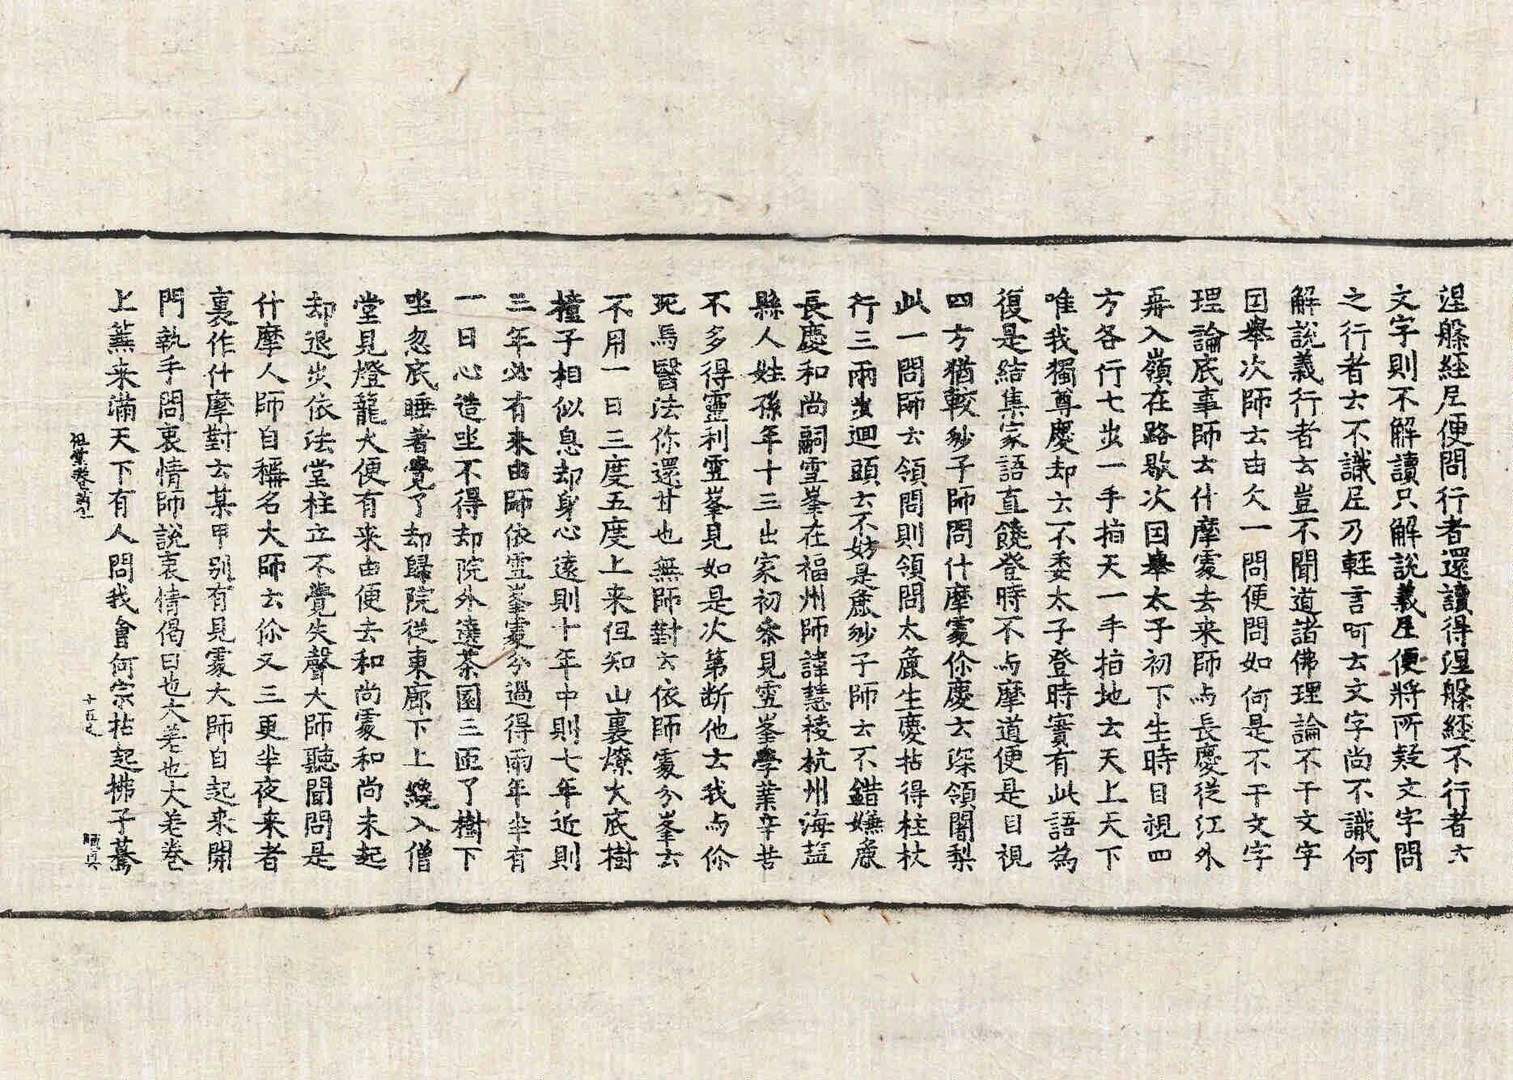 涅槃経尼便問行者還讀得涅槃経不行者云
文字則不解讀只解說義尼便將所疑文字問
之行者云不識尼乃輕言呵云文字尚不識何
解說義行者云豈不聞道諸佛理論不干文字
因舉次師云由欠一問便問如何是不干文字
理論底事師云什摩處去来師与長慶從江外
再入嶺在路歇次因舉太子初下生時目視四
方各行七步一手指天一手指地云天上天下
唯我獨尊慶却云不委太子登時實有此語為
復是結集家語直饒登時不与摩道便是目視
四方猶較紗子師問什摩處你慶云深領闍梨
此一問師云領問則領問太麁生慶拈得柱杖
行三兩步迴頭云不妨是麁紗子師云不錯嫌麁
長慶和尚嗣雪峯在福州師諱慧稜杭州海塩
縣人姓孫年十三出家初叅見雪峯學業辛苦
不多得靈利雪峯見如是次第断他云我与你
死馬醫法你還甘也無師對云依師處分峯云
不用一日三度五度上来但知山裏燎火底樹
橦子相似息却身心遠則十年中則七年近則
三年必有来由師依雪峯處分過得兩年半有
一日心造坐不得却院外遶茶園三匝了樹下
坐忽底睡著覺了却歸院從東廊下上纔入僧
堂見燈籠火便有来由便去和尚處和尚未起
却退步依法堂柱立不覺失聲大師聽聞問是
什摩人師自稱名大師云你又三更半夜来者
裏作什摩對云某甲別有見處大師自起来開
門執手問衷情師說衷情偈曰也大差也大差卷
上簾来滿天下有人問我會何宗拈起拂子驀
祖堂卷第十
十五丈